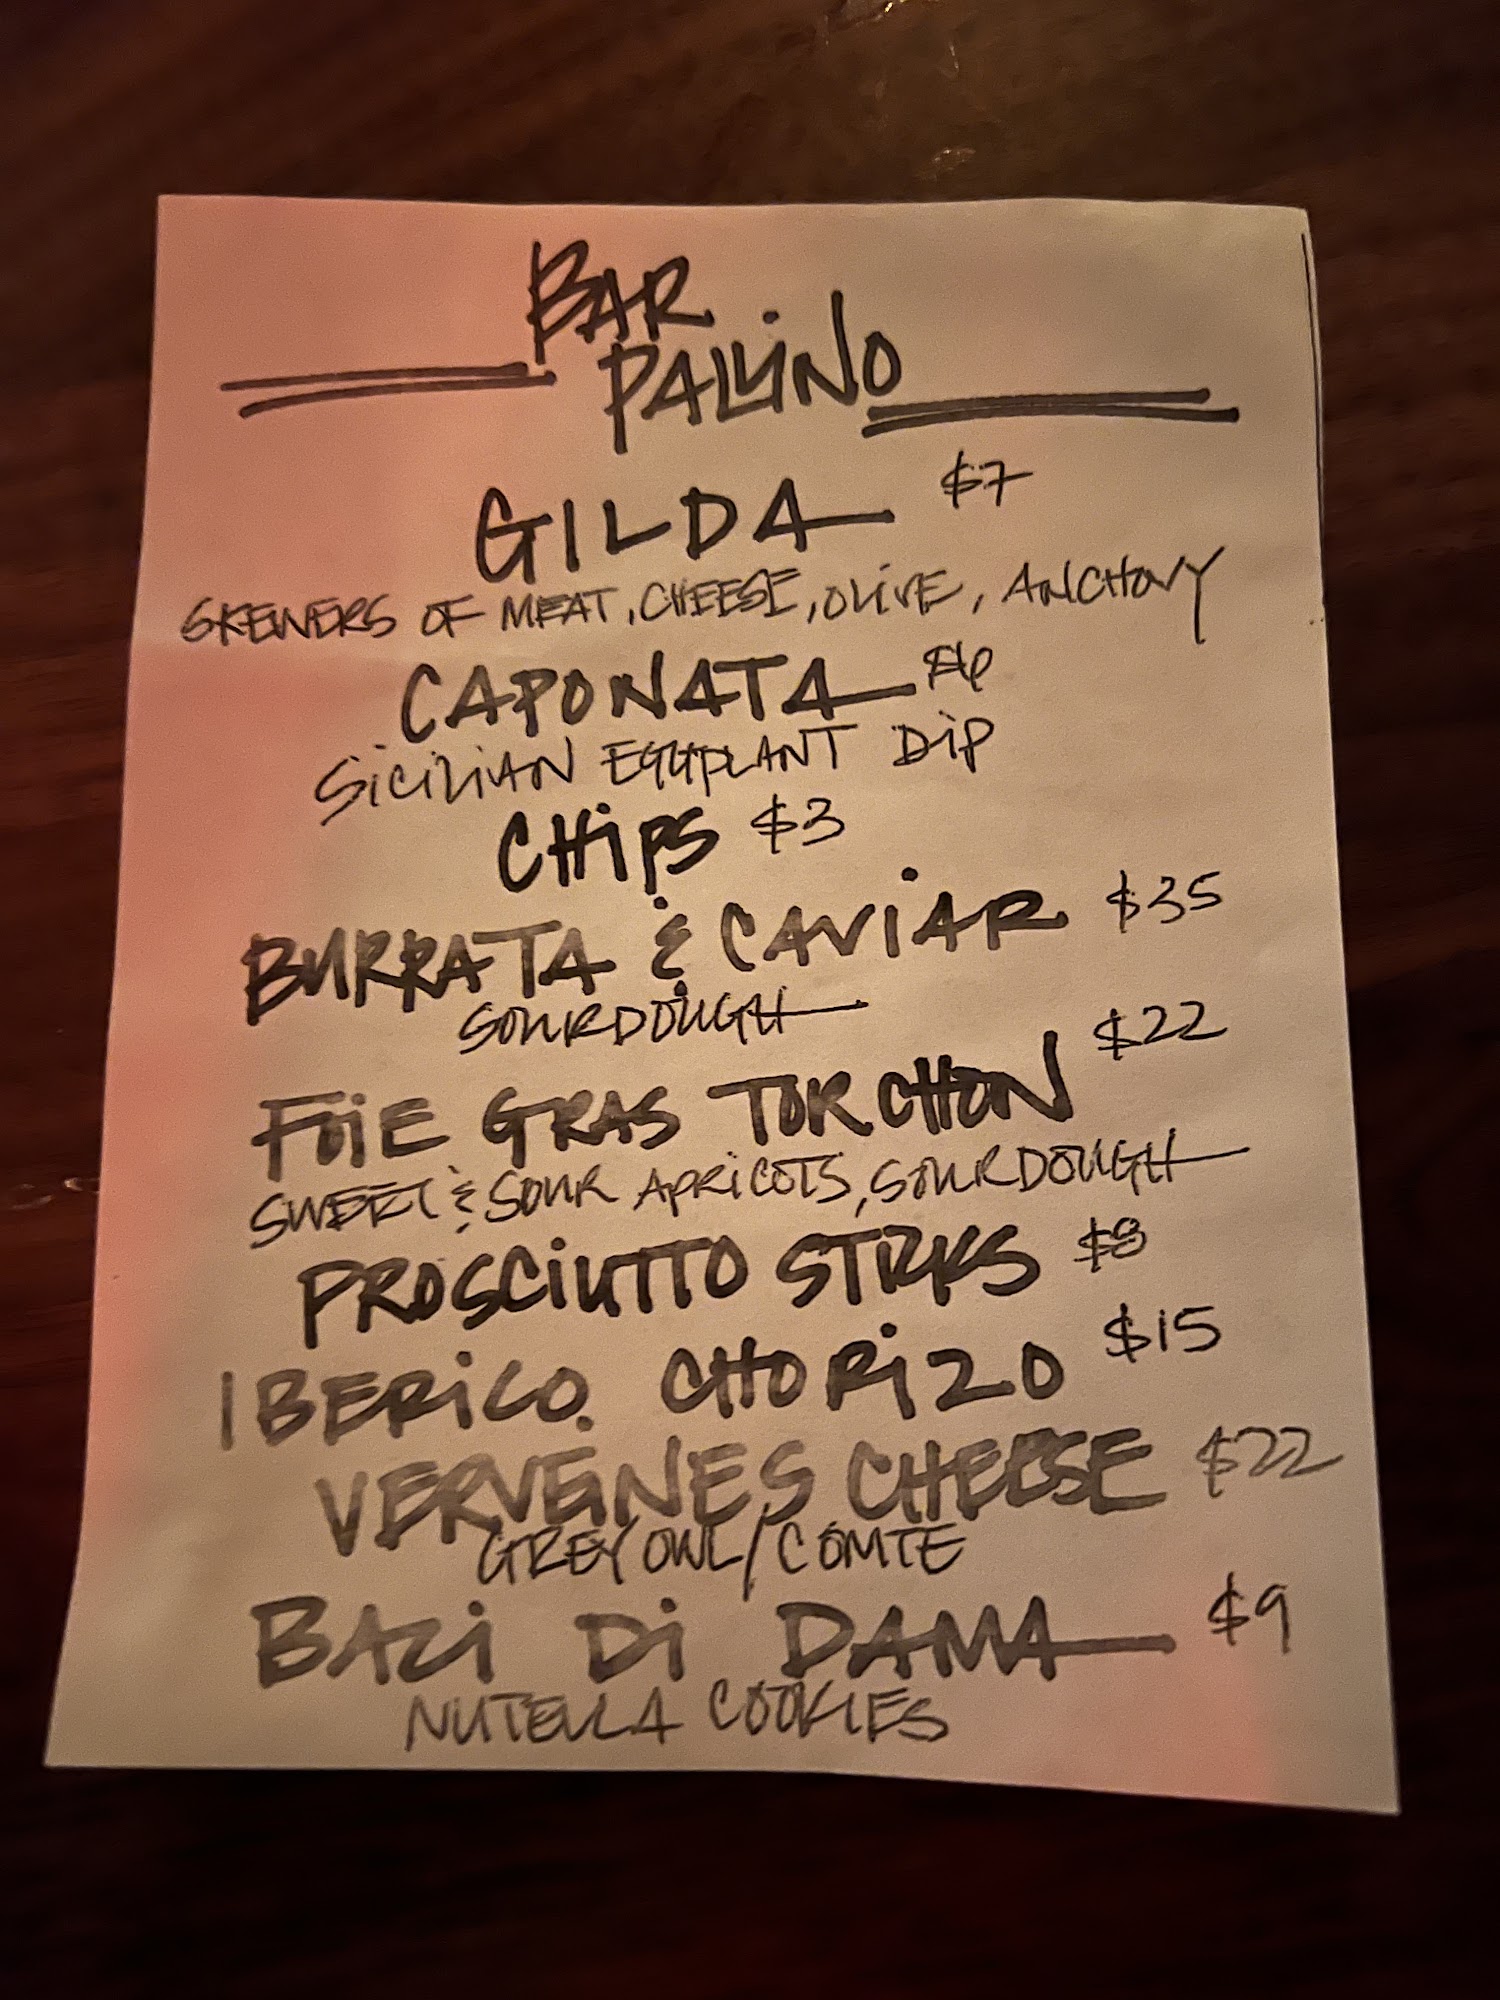 BAR
PALLINO
GILDA $7
SKEWERS OF MEAT, CHEESE, OLIVE, ANCHOVY
CAPONATA $6
SICILIAN EGGPLANT DIP
CHIPS $3
BURRATA & CAVIAR $35
SOURDOUGH
FOIE GRAS TORCHON $22
SWEET & SOUR APRICOTS, SOURDOUGH
PROSCIUTTO STICKS $8
IBERICO CHORIZO $15
CHEESE $22
GREY OWL/COMTE
BACI DI DAMA $9
NUTELLA COOKIES